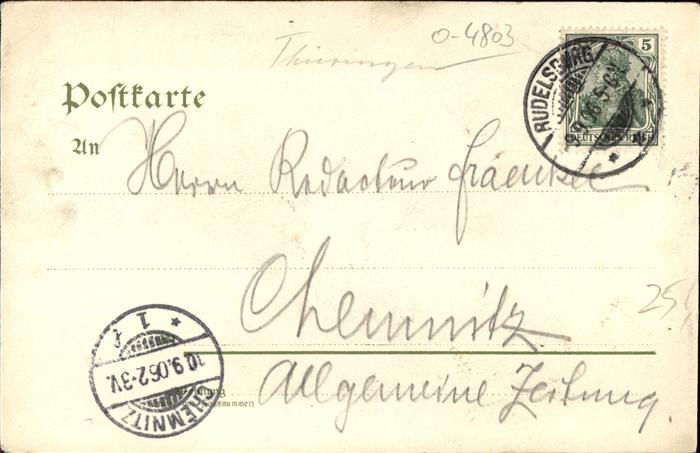 Thüringen
O-4803
5
DEUTSCHES REICH
RUDELSBURG
Postkarte
An
Herrn Redacteur Fraenkel
Chemnitz
25
Allgemeine Zeitung.
CHEMNITZ
10.9.06.2-3V.
* 1 *